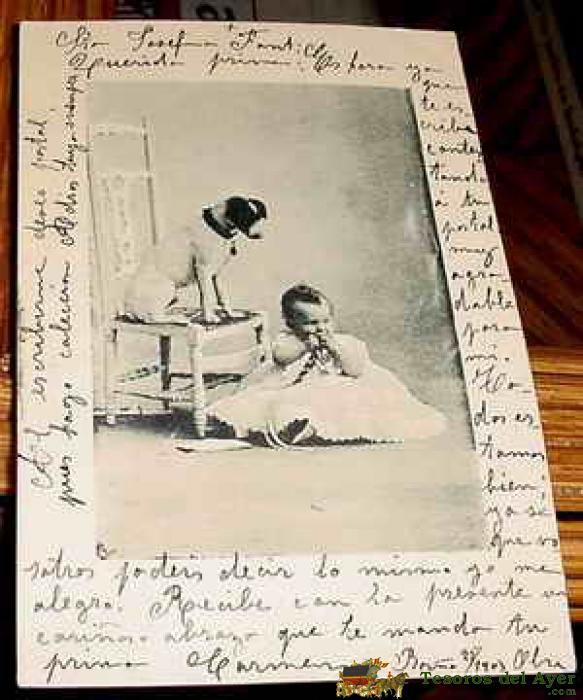 Sta Josefina Fonti
Querida prima: Es para ya
que
te es
criba
contes
tando
á tu
postal
muy
agra
dable
para
mi.
To
dos es
tamos
bien;
ya se
que vo
sotros podeis decir lo mismo yo me
alegro. Recibe con la presente un
cariñoso abrazo que te manda tu
prima Carmen
Al escribirme
postal,
pues hago colección Adios
Tesoros del Ayer
.com